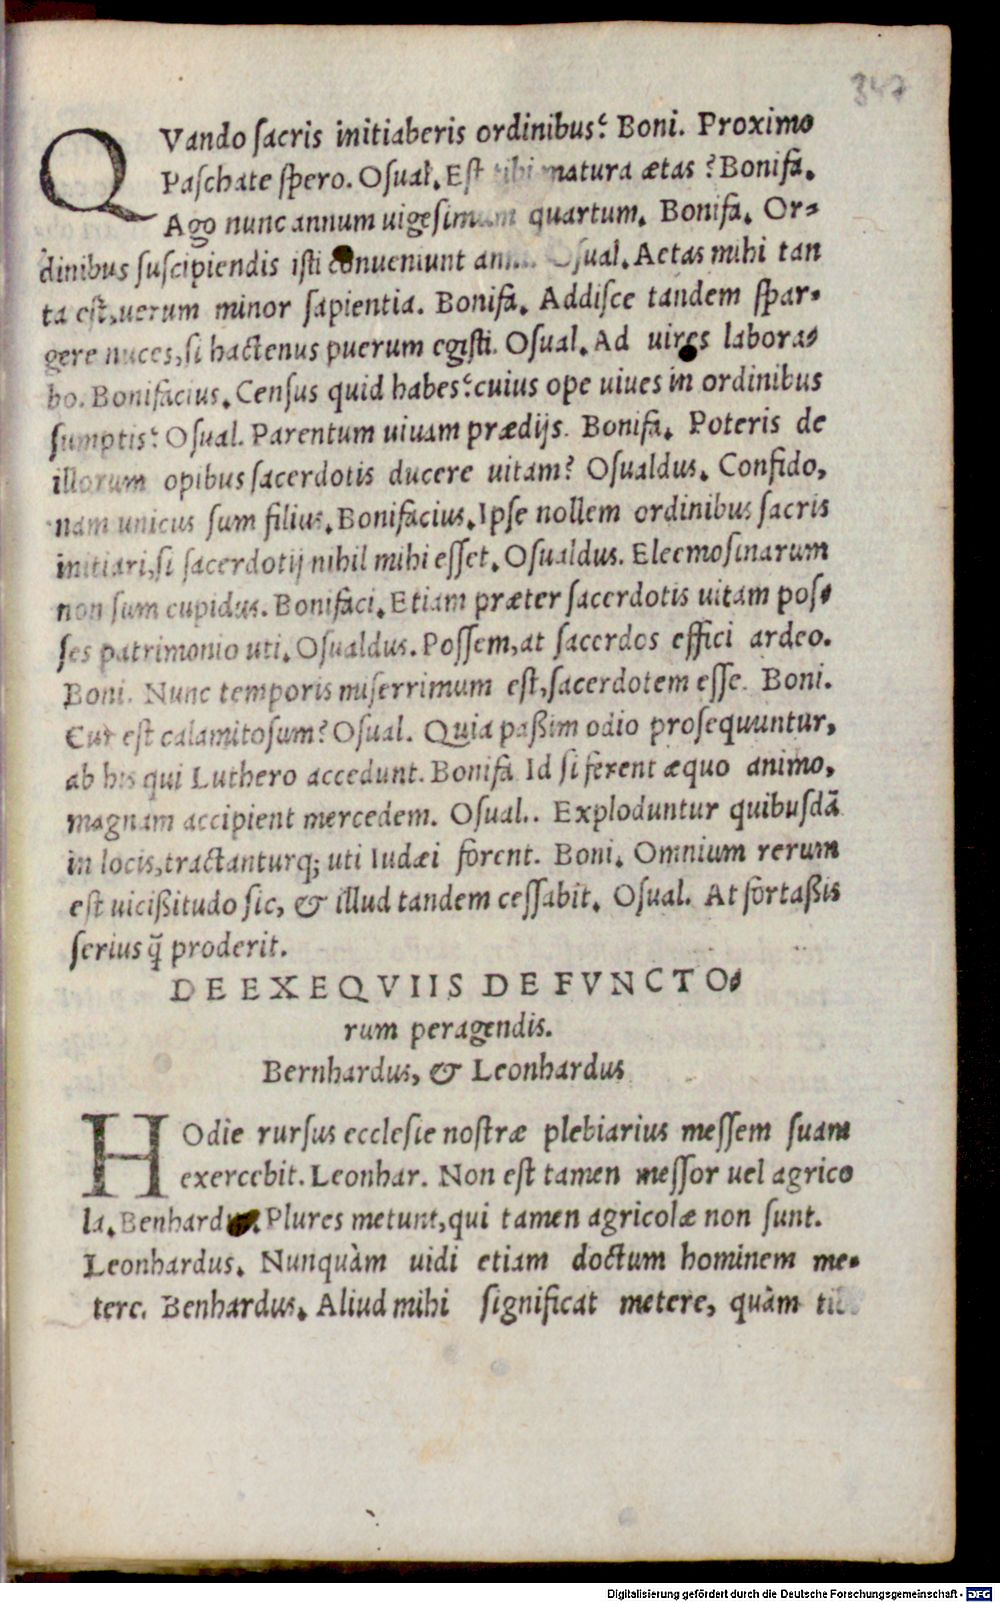 347
QVando sacris initiaberis ordinibus? Boni. Proximo
Paschate spero. Osual. Est tibi matura ætas? Bonifa.
Ago nunc annum uigesimum quartum. Bonifa. Or-
dinibus suscipiendis isti conueniunt Osual. Aetas mihi tan
ta est, uerum minor sapientia. Bonifa. Addisce tandem spar-
gere nuces, si hactenus puerum egisti. Osual. Ad uires labora-
bo. Bonifacius. Census quid habes? cuius ope uiues in ordinibus
sumptis? Osual. Parentum uiuam prædijs. Bonifa. Poteris de
illorum opibus sacerdotis ducere uitam? Osualdus. Confido,
nam unicus sum filius. Bonifacius. Ipse nollem ordinibus sacris
initiari, si sacerdotij nihil mihi esset. Osualdus. Eleemosinarum
non sum cupidus. Bonifaci. Etiam præter sacerdotis uitam pos-
ses patrimonio uti. Osualdus. Possem, at sacerdos effici ardeo.
Boni. Nunc temporis miserrimum est, sacerdotem esse. Boni.
Cur est calamitosum? Osual. Quia paßim odio prosequuntur,
ab his qui Luthero accedunt. Bonifa Id si ferent æquo animo,
magnam accipient mercedem. Osual.. Exploduntur quibusdā
in locis, tractanturq; uti Iudæi forent. Boni. Omnium rerum
est uicißitudo sic, & illud tandem cessabit. Osual. At fortaßis
serius q̄ proderit.
DE EXEQVIIS DEFVNCTO-
rum peragendis.
Bernhardus, & Leonhardus
HOdie rursus ecclesie nostræ plebiarius messem suam
exercebit. Leonhar. Non est tamen messor uel agrico
la. Benhardus. Plures metunt, qui tamen agricolæ non sunt.
Leonhardus. Nunquàm uidi etiam doctum hominem me-
tere. Benhardus. Aliud mihi significat metere, quàm
Digitalisierung gefördert durch die Deutsche Forschungsgemeinschaft - DFG